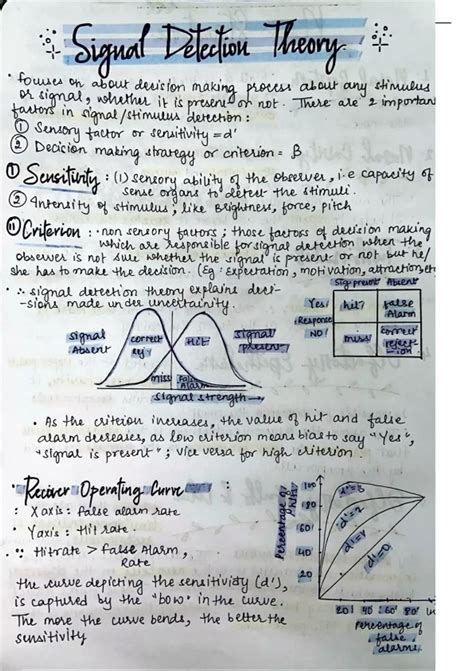 Signal Detection Theory
• focuses on about decision making process about any stimulus
or signal, whether it is present or not. There are 2 important
factors in signal/stimulus detection:
① Sensory factor or sensitivity = d'
② Decision making strategy or criterion = β
① Sensitivity : (1) sensory ability of the observer, i.e capacity of
sense organs to detect the stimuli.
② Intensity of stimulus, like brightness, force, pitch
⑪ Criterion : • non sensory factors ; those factors of decision making
which are responsible for signal detection when the
observer is not sure whether the signal is present or not but he/
she has to make the decision. (Eg: expectation, motivation, attraction etc
• ∴ signal detection theory explains deci-
-sions made under uncertainity.
Sig: present Absent
Yes/ hit? false
Alarm
Response
NO! miss/ correct
reject-
ion
Signal
Absent
correct
rej
Hit
signal
present
miss False
Alarm
Signal strength →
• As the criteion increases, the value of hit and false
alarm decreases, as low criterion means bias to say "Yes",
"signal is present" ; vice versa for high criterion.
• Reciever Operating Curve :
: X axis : False alarm rate
• Y axis : Hit rate.
• ∵ Hit rate > False Alarm,
Rate
the curve depicting the sensitivity (d'),
is captured by the "bow" in the curve.
The more the curve bends, the better the
sensitivity
Percentage of
hits
100
80
60
40
20
d'=2
d'=0
20 40 60 80
Percentage of
false
alarms.